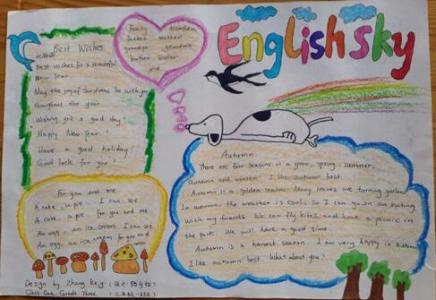 English sky
Best Wishes
Best wishes for a beautiful
New Year.
May the joy of Christmas be with you
throughout the year
Wishing you a good day
Happy New Year!
Have a good holiday!
Good luck for you
Family
father mother
grandpa grandma
brother sister
me
For you and me
A cake, a pie. I can see
A cake, a pie For you and me
An egg, an ice cream. I can see
An egg, an ice cream for you and me
Design by Zhang
Class One, Grade Three
Autumn
There are four seasons in a year, spring, summer,
autumn and winter. I like autumn best.
Autumn is a golden season. Many leaves are turning yellow.
In autumn the weather is cool. So I can go an outing
with my friends. We can fly kites and have a picnic in
the park. We will have a good time.
Autumn is a harvest season. I am very happy in autumn
I like autumn best. What about you?